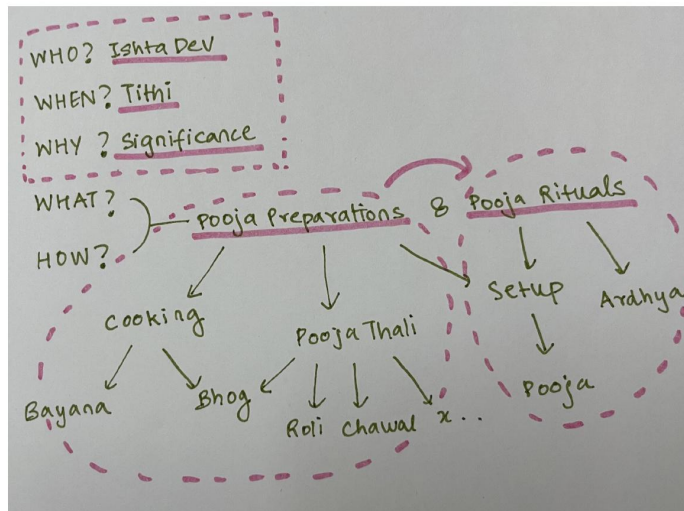 WHO? Ishta Dev
WHEN? Tithi
WHY ? Significance
WHAT?
HOW?
Pooja Preparations & Pooja Rituals
Cooking
Pooja Thali
Setup
Ardhya
Bayana
Bhog
Roli Chawal x..
Pooja